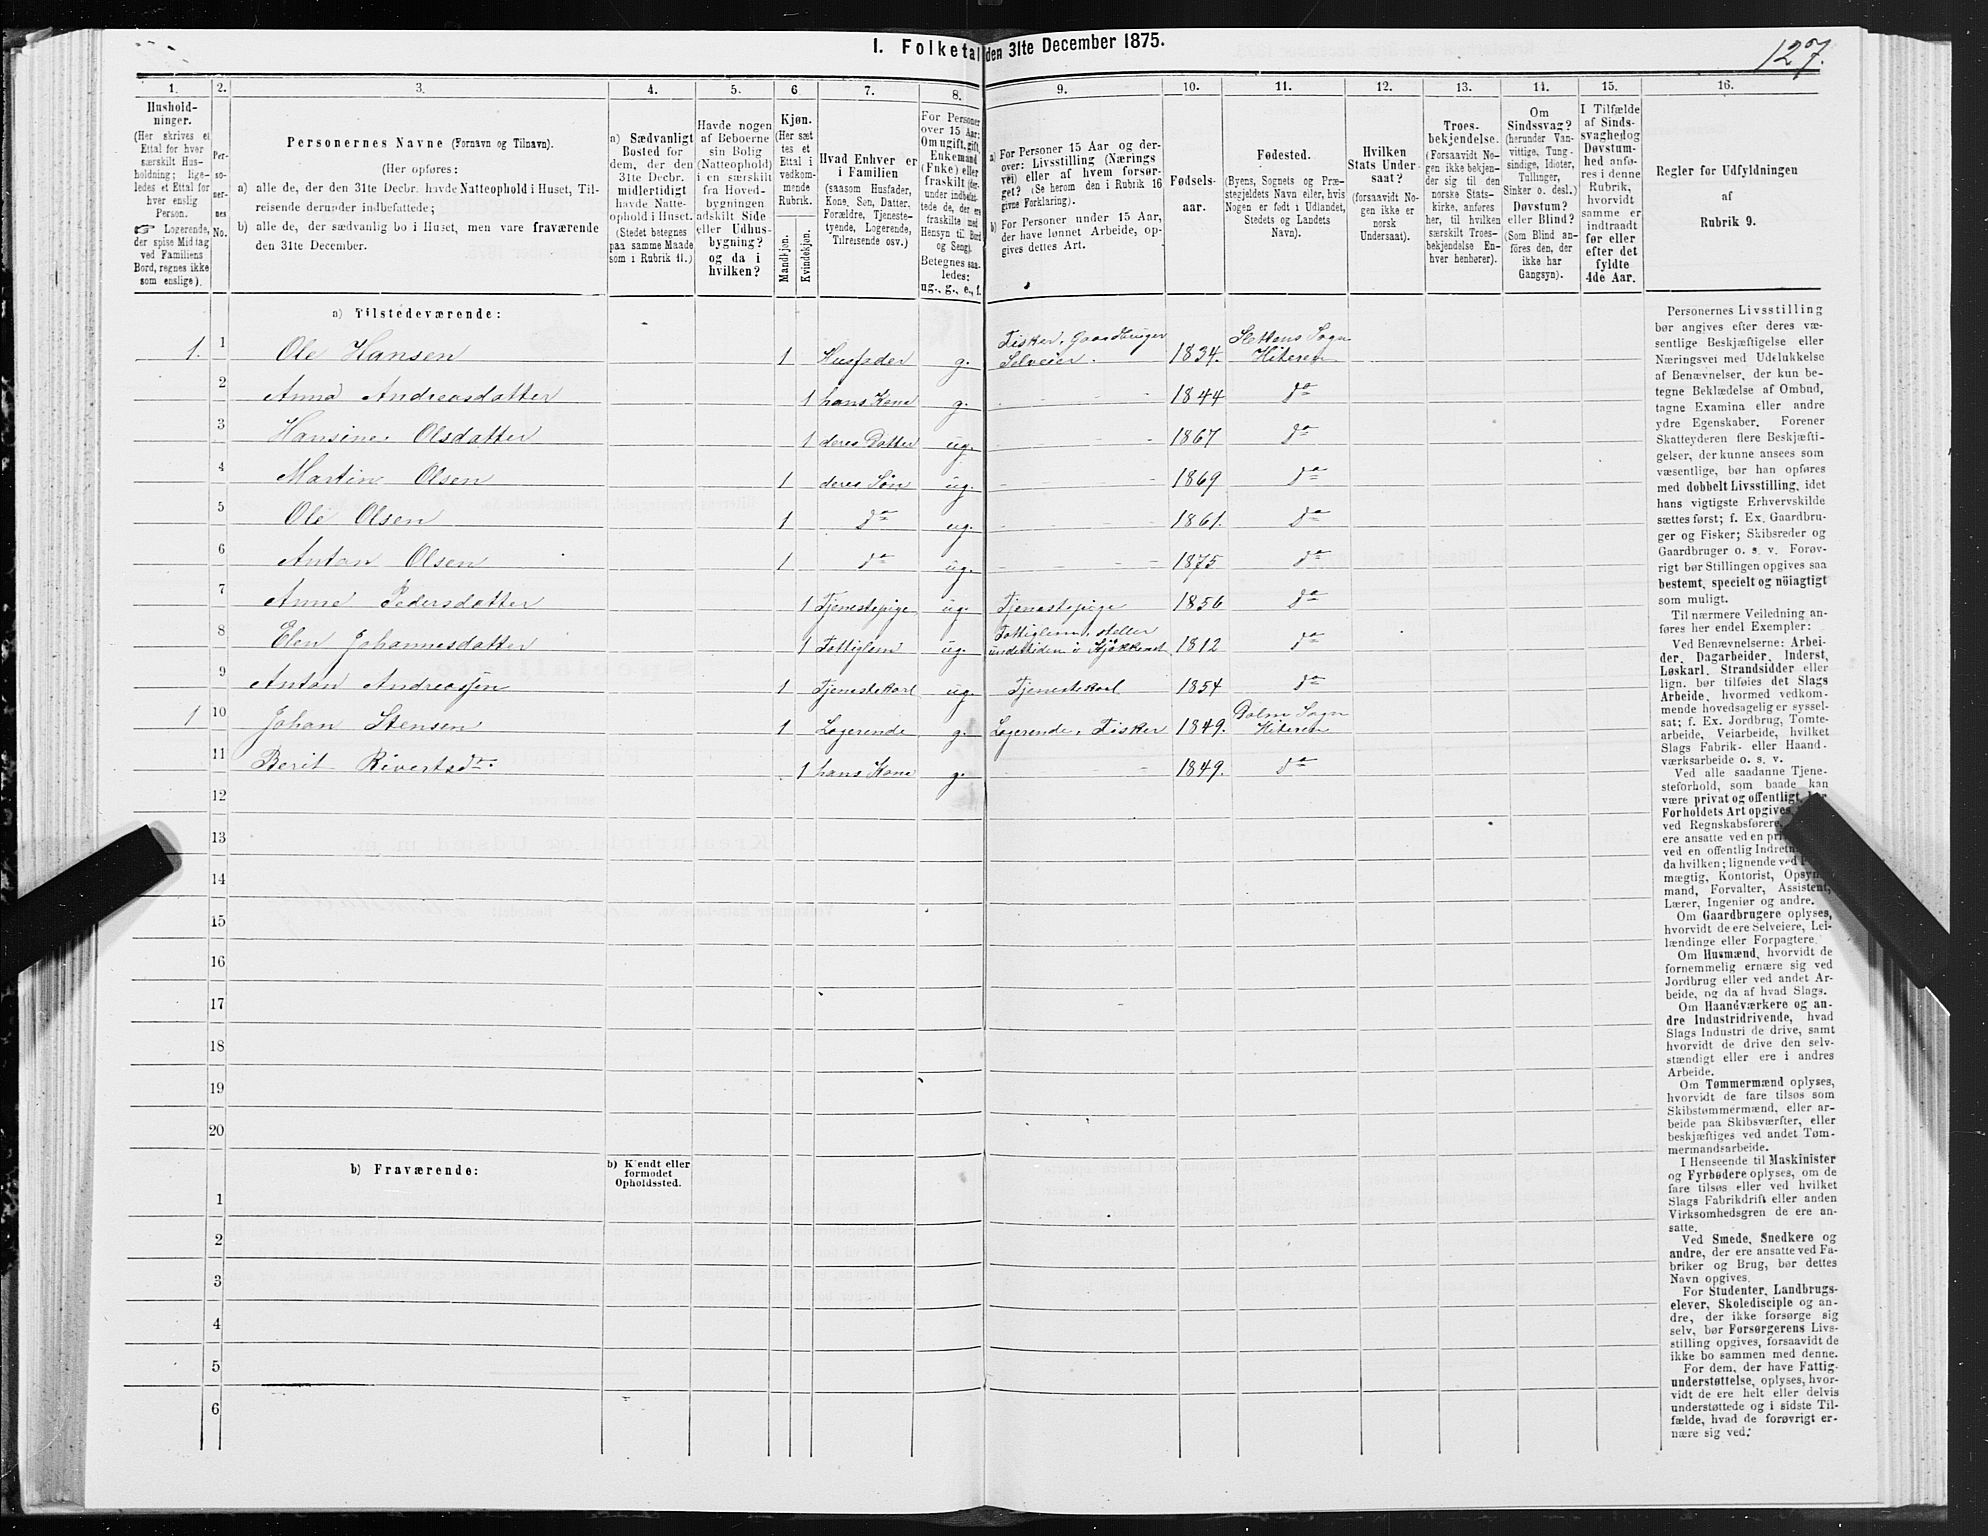 I. Folketal den 31te December 1875.
127.
1. 2. 3. 4. 5. 6 7. 8. 9. 10. 11. 12. 13. 14. 15. 16.
Hushold-
ninger.
(Her skrives et
Ettal for hver
særskilt Hus-
holdning; lige-
ledes et Ettal for
hver enslig
Person.
☞ Logerende,
der spise Middag
ved Familiens
Bord, regnes ikke
som enslige).
Per-
so-
ner-
nes
No.
Personernes Navne (Fornavn og Tilnavn).
(Her opføres:
a) alle de, der den 31te Decbr. havde Natteophold i Huset, Til-
reisende derunder indbefattede;
b) alle de, der sædvanlig bo i Huset, men vare fraværende
den 31te December.
a) Sædvanligt
Bosted for
dem, der den
31te Decbr.
midlertidigt
havde Natte-
ophold i Huset.
(Stedet betegnes
paa samme Maade
som i Rubrik 11.)
Havde nogen
af Beboerne
sin Bolig
(Natteophold)
i en særskilt
fra Hoved-
bygningen
adskilt Side
eller Udhus-
bygning?
og da i
hvilken?
Kjøn.
(Her sæt
tes et
Ettal i
vedkom-
mende
Rubrik.
Mandkjøn.
Kvindekjøn.
Hvad Enhver er
i Familien
(saasom Husfader,
Kone, Søn, Datter,
Forældre, Tjeneste-
tyende, Logerende,
Tilreisende osv.)
For Personer
over 15 Aar:
Om ugift, gift,
Enkemand
(Enke) eller
fraskilt (der-
under indbefat-
tede de, der ere
fraskilte med
Hensyn til Bord
og Seng).
Betegnes saa-
ledes:
ug., g., e., f.
a) For Personer 15 Aar og der-
over: Livsstilling (Nærings
vei) eller af hvem forsør-
get? (Se herom den i Rubrik 16
givne Forklaring).
b) For Personer under 15 Aar,
der have lønnet Arbeide, op-
gives dettes Art.
Fødsels-
aar.
Fødested.
(Byens, Sognets og Præ-
stegjeldets Navn eller, hvis
Nogen er født i Udlandet,
Stedets og Landets
Navn).
Hvilken
Stats Under-
saat?
(forsaavidt No-
gen ikke er
norsk
Undersaat).
Troes-
bekjendelse.
(Forsaavidt No-
gen ikke bekjen-
der sig til den
norske Stats-
kirke, anføres
her, til hvilken
særskilt Troes-
bekjendelse En-
hver henhører).
Om
Sindssvag?
(herunder Van-
vittige, Tung-
sindige, Idioter,
Tullinger,
Sinker o. desl.)
Døvstum?
eller Blind?
(Som Blind an-
føres den, der
ikke har
Gangsyn).
I Tilfælde
af Sinds-
svaghed og
Døvstum-
hed anfø-
res i denne
Rubrik,
hvorvidt
samme er
indtraadt
før eller
efter det
fyldte
4de Aar.
Regler for Udfyldningen
af
Rubrik 9.
a) Tilstedeværende:
1. 1 Ole Hansen 1 Husfader g. Fisker, Gaardbruger Selveier. 1834. Slettens Sogn Hiteren
2 Anna Andreasdatter 1 hans Kone g. 1844 do
3 Hansine Olsdatter 1 deres Datter ug. 1867 do
4 Martin Olsen 1 deres Søn ug. 1869 do
5 Ole Olsen 1 do ug. 1861. do
6 Anton Olsen 1 do ug. 1875 do
7 Anne Pedersdatter 1 Tjenestepige ug. Tjenestepige 1856 do
8 Elen Johannesdatter 1 Fattiglem ug. Fattiglem, steller undertiden i Kjøkkenet 1812 do
9 Anton Andreassen 1 Tjenestekarl ug. Tjenestekarl 1854 do
1 10 Johan Stensen 1 Logerende g. Logerende, Fisker 1849. Dolm Sogn Hiteren
11 Berit Rivertsdt. 1 hans Kone g. 1849. do
12
13
14
15
16
17
18
19
20
b) Fraværende:
b) Kjendt eller
formodet
Opholdssted.
1
2
3
4
5
6
Personernes Livsstilling
bør angives efter deres væ-
sentlige Beskjæftigelse eller
Næringsvei med Udelukkelse
af Benævnelser, der kun be-
tegne Beklædelse af Ombud,
tagne Examina eller andre
ydre Egenskaber. Forener
Skatteyderen flere Beskjæfti-
gelser, der kunne ansees som
væsentlige, bør han opføres
med dobbelt Livsstilling, idet
hans vigtigste Erhvervskilde
sættes først; f. Ex. Gaardbru-
ger og Fisker; Skibsreder og
Gaardbruger o. s. v. Forøv-
rigt bør Stillingen opgives saa
bestemt, specielt og nöiagtigt
som muligt.
Til nærmere Veiledning an-
føres her endel Exempler:
Ved Benævnelserne: Arbei-
der, Dagarbeider, Inderst,
Løskarl, Strandsidder eller
lign. bør tilføies det Slags
Arbeide, hvormed vedkom-
mende hovedsagelig er syssel-
sat; f. Ex. Jordbrug, Tomte-
arbeide, Veiarbeide, hvilket
Slags Fabrik- eller Haand-
værksarbeide o. s. v.
Ved alle saadanne Tjene-
steforhold, som baade kan
være privat og offentligt, bør
Forholdets Art opgives,
ved Regnskabsførere,
ere ansatte ved en
ved en offentlig
da hvilken; lignende ved
mægtig, Kontorist, Opsyns-
mand, Forvalter, Assistent,
Lærer, Ingeniør og andre.
Om Gaardbrugere oplyses,
hvorvidt de ere Selveiere, Lei-
lændinge eller Forpagtere.
Om Husmænd, hvorvidt de
fornemmelig ernære sig ved
Jordbrug eller ved andet Ar-
beide, og da af hvad Slags.
Om Haandværkere og an-
dre Industridrivende, hvad
Slags Industri de drive, samt
hvorvidt de drive den selv-
stændigt eller ere i andres
Arbeide.
Om Tømmermænd oplyses,
hvorvidt de fare tilsøs som
Skibstømmermænd, eller ar-
beide paa Skibsværfter, eller
beskjæftiges ved andet Tøm-
mermandsarbeide.
I Henseende til Maskinister
og Fyrbødere oplyses, om de
fare tilsøs eller ved hvilket
Slags Fabrikdrift eller anden
Virksomhedsgren de ere an-
satte.
Ved Smede, Snedkere og
andre, der ere ansatte ved Fa-
briker og Brug, bør dettes
Navn opgives.
For Studenter, Landbrugs-
elever, Skoledisciple og an-
dre, der ikke forsørge sig
selv, bør Forsørgerens Livs-
stilling opgives, forsaavidt de
ikke bo sammen med denne.
For dem, der have Fattig-
understøttelse, oplyses, hvor-
vidt de ere helt eller delvis
understøttede og i sidste Til-
fælde, hvad de forøvrigt er-
nære sig ved.